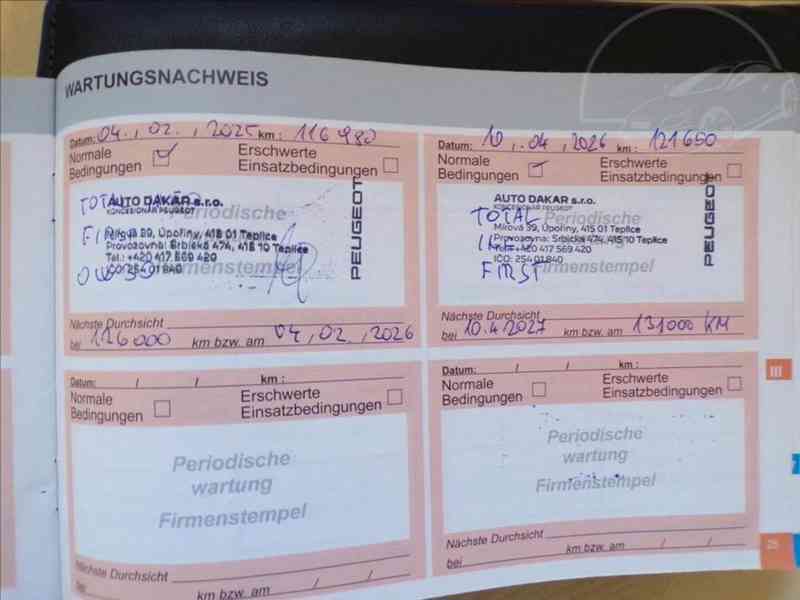 WARTUNGSNACHWEIS
Datum: 04., 02., 2025 km : 116 980
Normale
Bedingungen
Erschwerte
Einsatzbedingungen
TOTAL
AUTO DAKAR s.r.o.
KONCESIONÁŘ PEUGEOT
Periodische
FIRST
Mírová 99, Úpořiny, 415 01 Teplice
Provozovna: Srbická 474, 415 10 Teplice
Tel.: +420 417 569 420
IČO: 254 01 840
Firmenstempel
PEUGEOT
Nächste Durchsicht
bei 126000 km bzw. am 04, 02, 2026
Datum: 10., 04, 2026 km : 121650
Normale
Bedingungen
Erschwerte
Einsatzbedingungen
AUTO DAKAR s.r.o.
KONCESIONÁŘ PEUGEOT
TOTAL
Periodische
Mírová 99, Úpořiny, 415 01 Teplice
Provozovna: Srbická 474, 415 10 Teplice
INEO
Tel.: +420 417 569 420
IČO: 254 01 840
FIRST
Firmenstempel
PEUGEOT
Nächste Durchsicht
bei 10.4.2027 km bzw. am 131000 KM
Datum: / / km :
Normale
Bedingungen
Erschwerte
Einsatzbedingungen
Periodische
wartung
Firmenstempel
Nächste Durchsicht
km bzw. am / /
Datum: / / km :
Normale
Bedingungen
Erschwerte
Einsatzbedingungen
Periodische
wartung
Firmenstempel
Nächste Durchsicht
bei km bzw. am / /
III